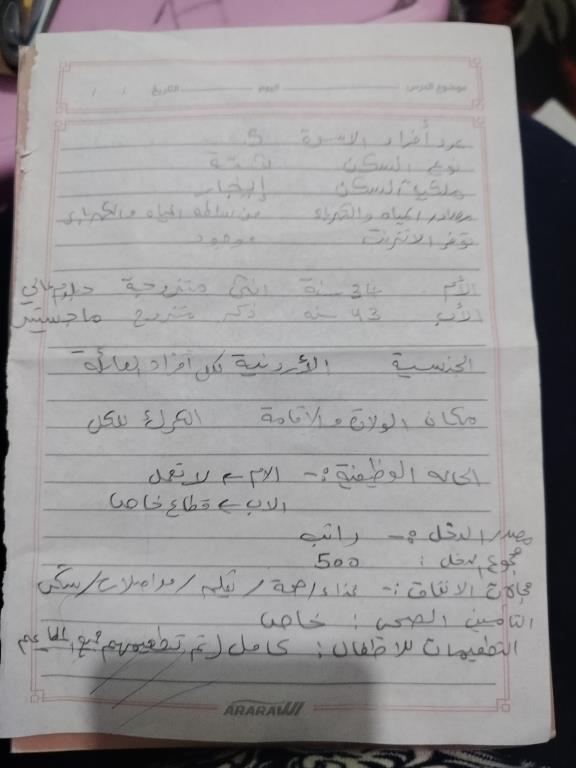 موضوع الدرس اليوم التاريخ / /
عدد أفراد الاسرة 5
نوع السكن شقة
ملكية السكن إيجار
مصادر المياه والكهرباء من سلطة المياه والكهرباء
توفر الانترنت موجود
الأم 34 سنة انثى متزوجة دبلوم عالي
الأب 43 سنه ذكر متزوج ماجستير
الجنسية الأردنية لكل أفراد العائلة
مكان الولادة والاقامة الكرك للكل
الحاله الوظيفية :- الام ← لا تعمل
الاب ← قطاع خاص
مصدر الدخل :- راتب
مجموع الدخل : 500
مجالات الانفاق :- غذاء / صحة / تعليم / مواصلات / سكن
التامين الصحي : خاص
التطعيمات للاطفال : كامل (تم تطعيمهم جميع
ARARAWI